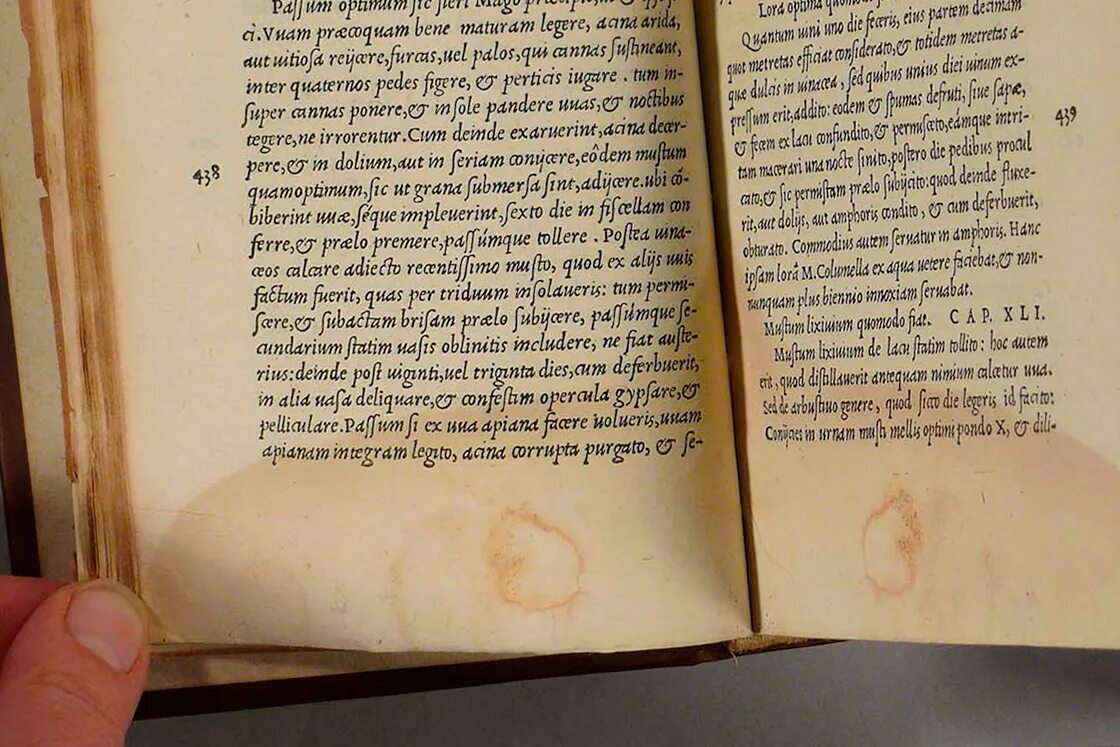 Passum optimum sic fieri Mago præcipit,
ci.Vuam præcoquam bene maturam legere, acina arida,
aut uitiosa reijcere, furcas, uel palos, qui cannas sustineant,
inter quaternos pedes figere, & perticis iugare . tum in-
super cannas ponere, & in sole pandere uuas, & noctibus
tegere, ne irrorentur. Cum deinde exaruerint, acina decer-
438
pere, & in dolium, aut in seriam conijcere, eôdem mustum
quamoptimum, sic ut grana submersa sint, adijcere. ubi cō-
biberint uuæ, séque impleuerint, sexto die in fiscellam con
ferre, & prælo premere, passúmque tollere . Postea uina-
ceos calcare adiecto recentissimo musto, quod ex alijs uuis
factum fuerit, quas per triduum insolaueris: tum permi-
scere, & subactam brisam prælo subijcere, passúmque se-
cundarium statim uasis oblinitis includere, ne fiat auste-
rius: deinde post uiginti, uel triginta dies, cum deferbuerit,
in alia uasa deliquare, & confestim opercula gypsare, &
pelliculare. Passum si ex uua apiana facere uolueris, uuam
apianam integram legito, acina corrupta purgato, & se-
Lora optima quomodo
Quantum uini uno die feceris, eius partem decimam
quot metretas efficiat considerato, & totidem metretas a-
quæ dulcis in uinacea , sed quibus unius diei uinum ex-
pressum erit, addito: eodem & spumas defruti, siue sapæ,
& fecem ex lacu confundito, & permisceto, eámque intri-
439
tam macerari una nocte sinito, postero die pedibus procul
cato, & sic permistam prælo subijcito: quod deinde fluxe-
rit, aut dolijs, aut amphoris condito , & cum deferbuerit,
obturato. Commodius autem seruatur in amphoris. Hanc
ipsam lorã M. Columella ex aqua uetere faciebat, & non-
nunquam plus biennio innoxiam seruabat.
Mustum lixiuium quomodo fiat. CAP. XLI.
Mustum lixiuium de lacu statim tollito : hoc autem
erit, quod distillauerit antequam nimium calcetur uua.
Sed de arbustiuo genere, quod sicco die legeris id facito:
Conijcies in urnam musti mellis optimi pondo X, & dili-